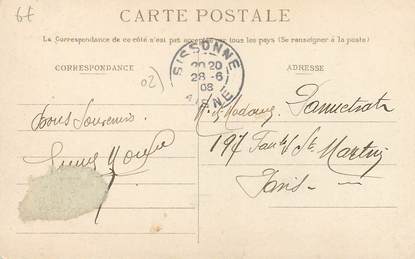 6t
CARTE POSTALE
La Correspondance de ce côté n'est pas acceptée par tous les pays (Se renseigner à la poste)
CORRESPONDANCE
ADRESSE
SISSONNE
20 20
28-6
08
AISNE
02)
Bons Souvenirs
M. et Madame
197 Faubg St. Martin
Paris